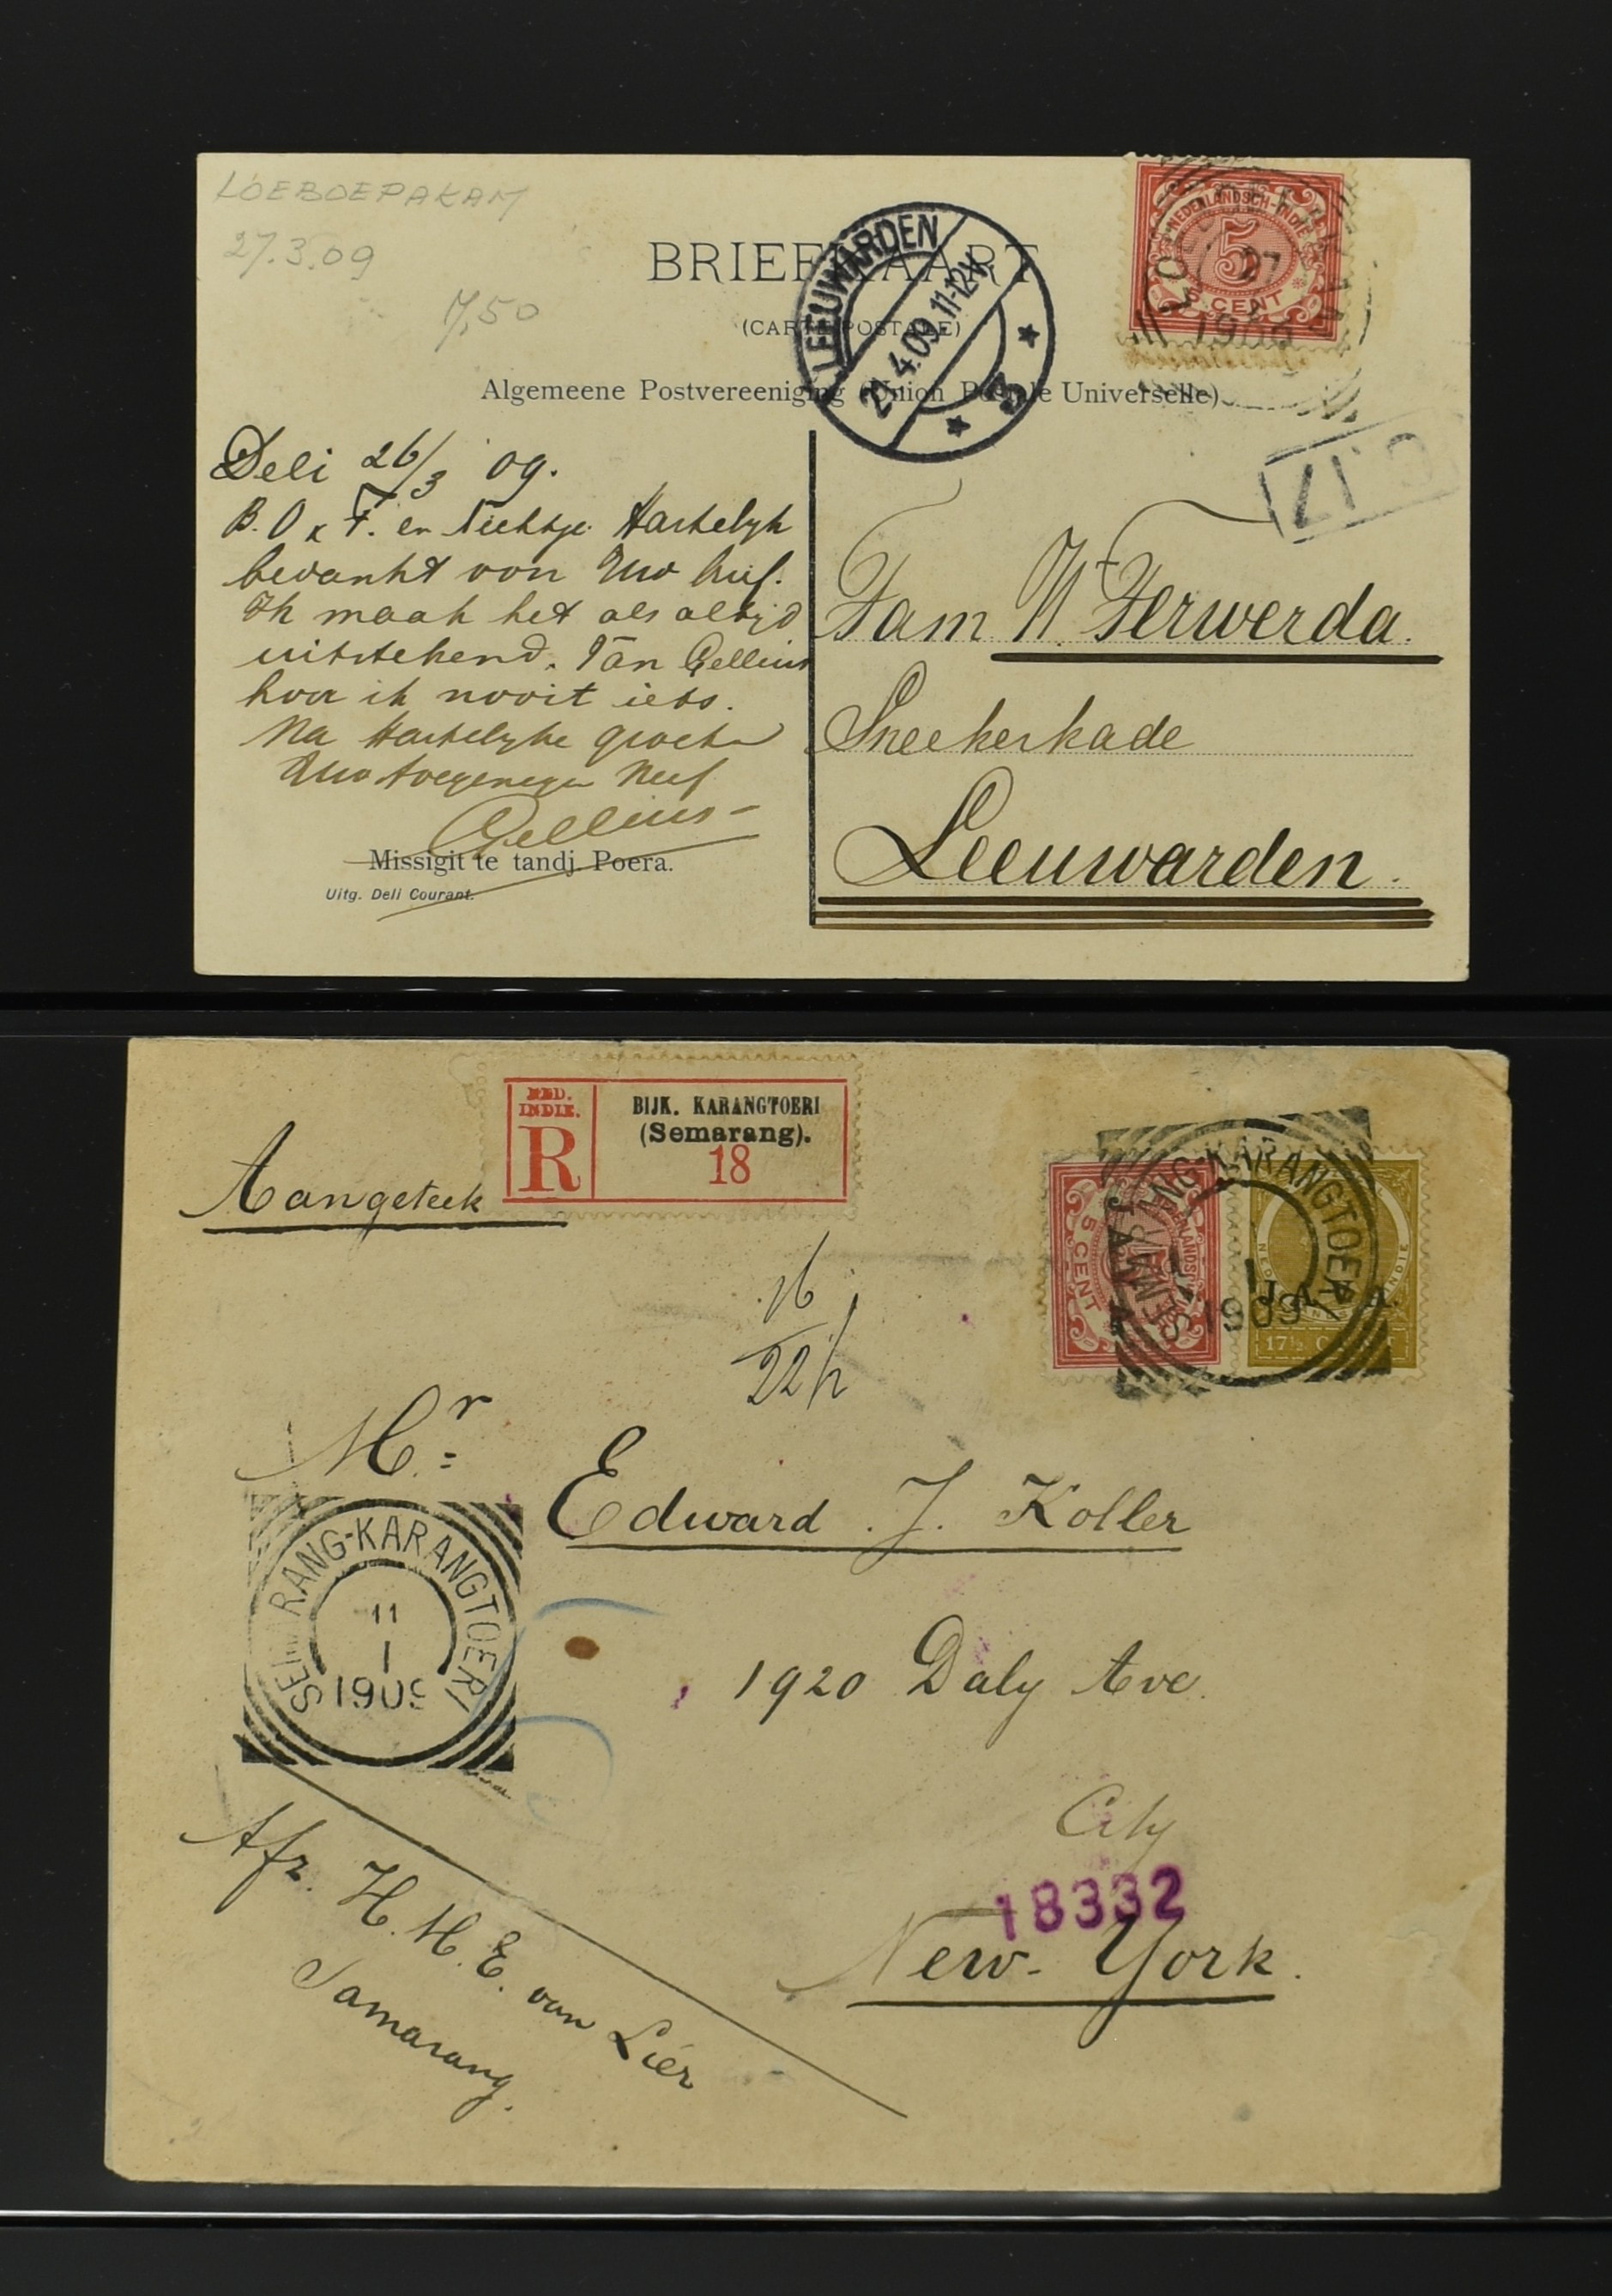 LOEBOEPAKAM
27.3.09
7,50
BRIEFKAART
(CARTE POSTALE)
Algemeene Postvereeniging (Union Postale Universelle)
LEEUWARDEN
4.09 11-12V
3
NEDERLANDSCH-INDIE
5
5 CENT
27
3
Deli 26/3 09.
B. O x T. en Nichtje Hartelijk
bedankt voor Uw brief.
Ik maak het als altijd
uitstekend. Van Gellius
hoor ik nooit iets.
Na Hartelijke groeten
Uw toegenegen Neef
Gellius
Missigit te tandj. Poera.
Uitg. Deli Courant.
Fam W. Ferwerda.
Sneekerkade
Leeuwarden.
NED.
INDIE.
R
BIJK. KARANGTOERI
(Semarang).
18
Aangeteek
5 CENT
17½ CENT
SEMARANG-KARANGTOERI
1909
JAVA.
16
22½
Mr.
Edward. J. Koller
SEMARANG-KARANGTOERI
11
1
1909
1920 Daly Ave.
City
18332
New-York.
Afz. H. M. E. van Lier
Samarang.